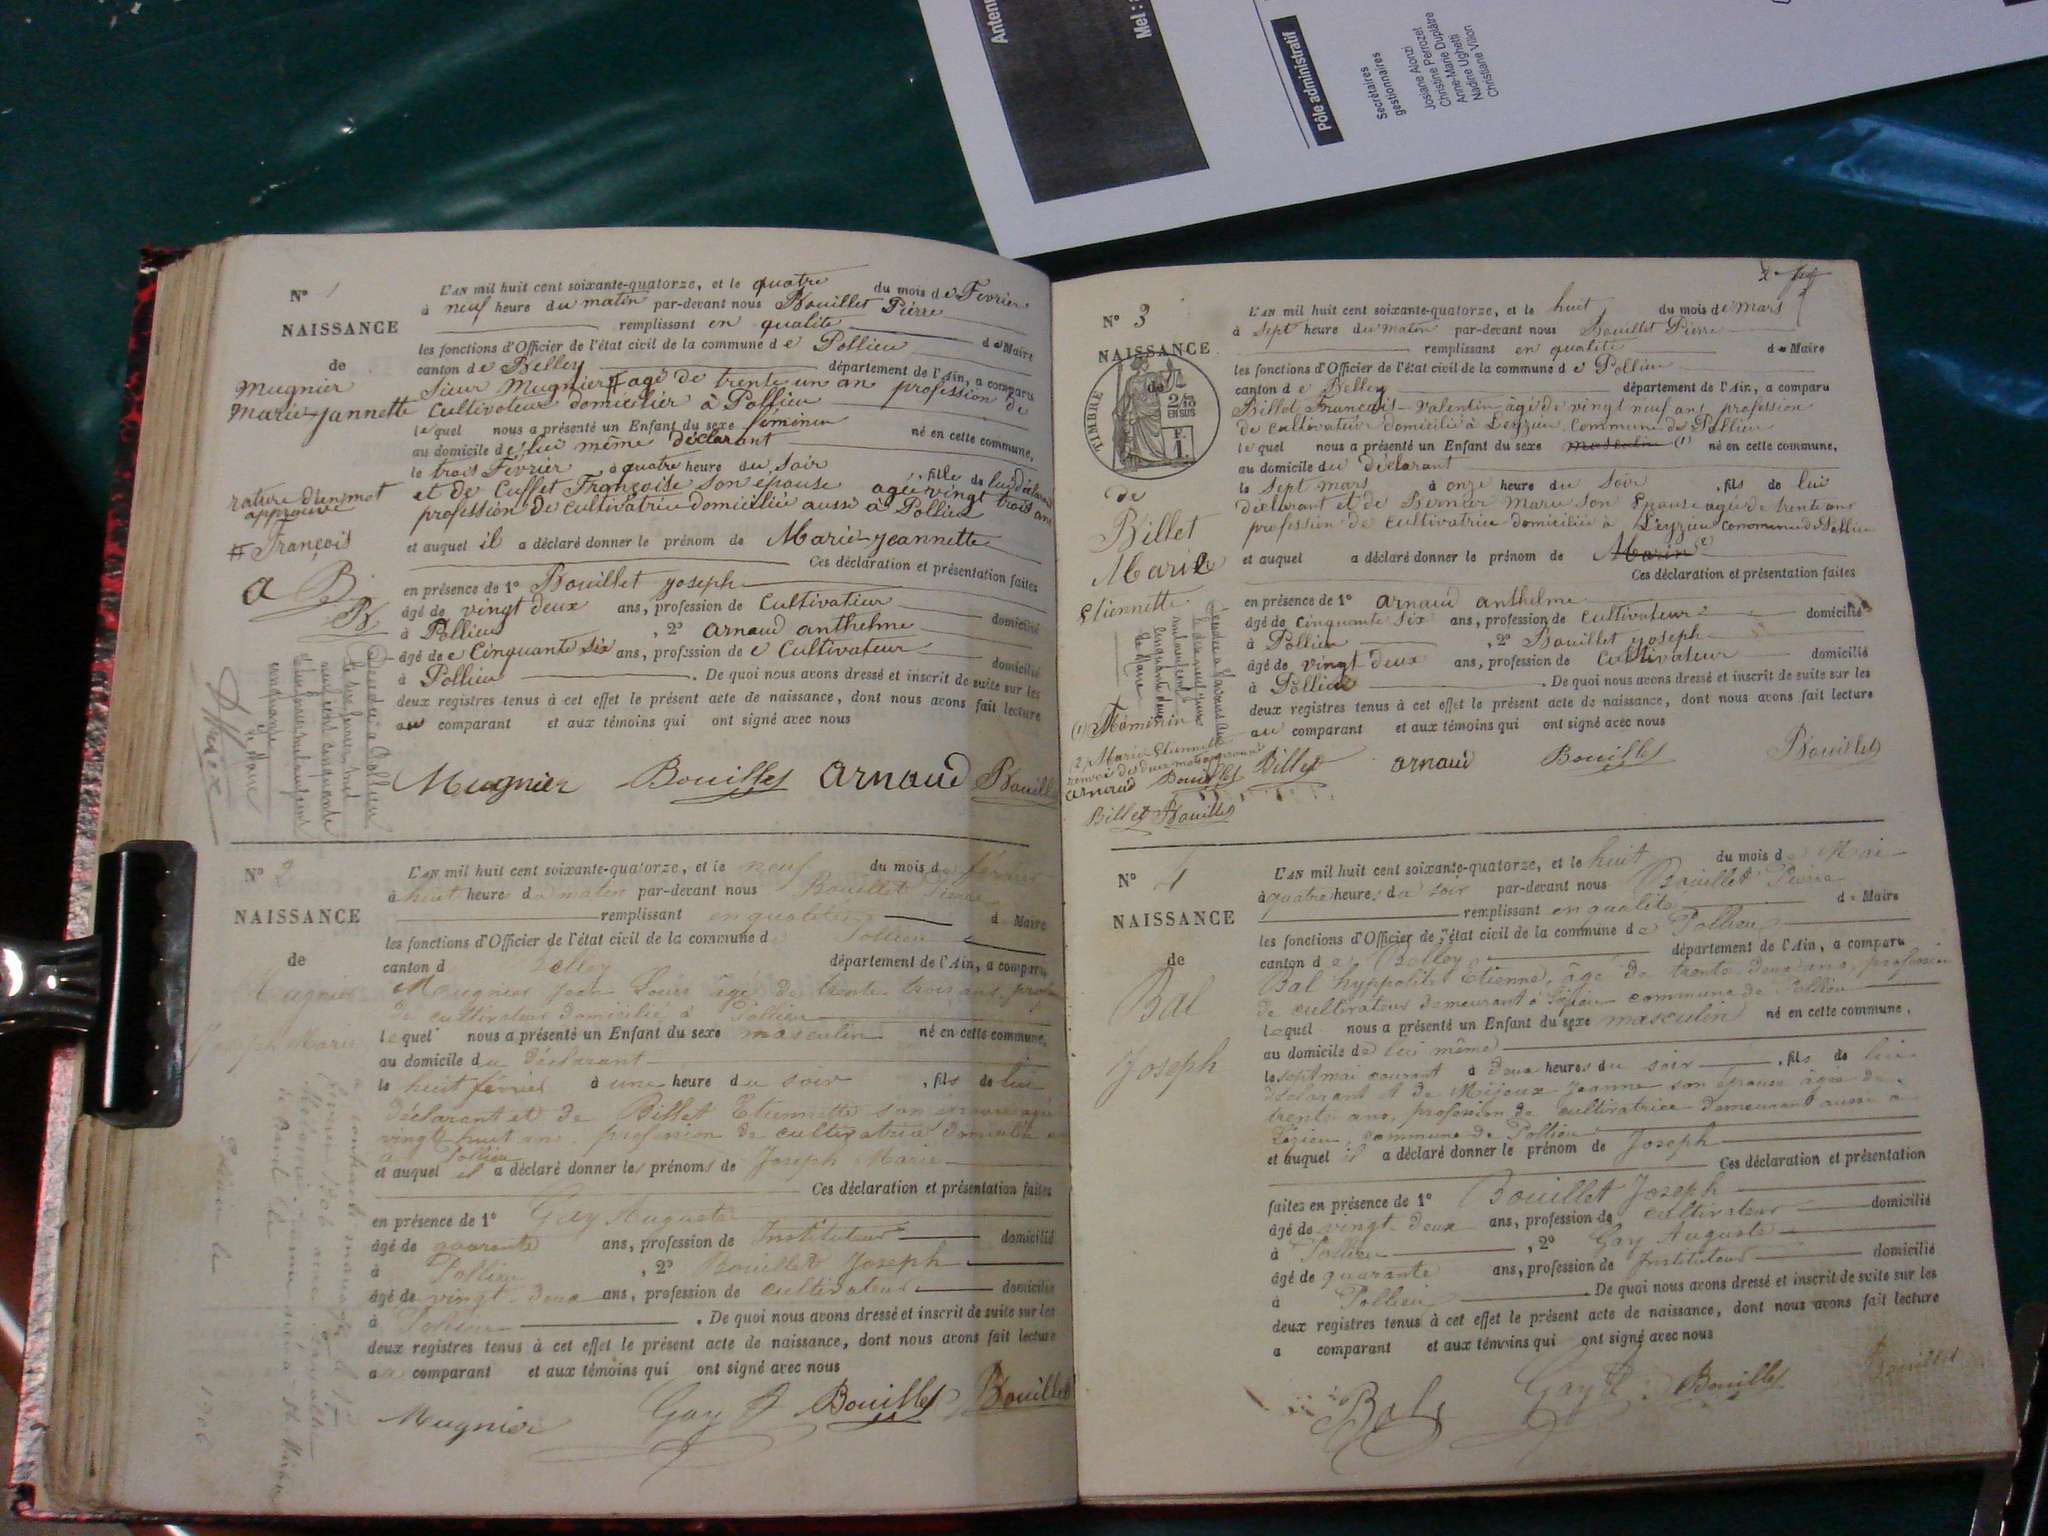 Antenn
Mel :
Pôle administratif
Secrétaires
gestionnaires
Josiane Alonzi
Christine Perruzet
Christine-Marie Duplâtre
Anne-Marie Ughetti
Nadine Villon
Christiane
N° 1
NAISSANCE
de
Mugnier
Marie-Jannette
rature d'un mot
approuvé
# François
a B.
B
L'AN mil huit cent soixante-quatorze, et le quatre du mois de Fevrier
à neuf heure du matin par-devant nous Bouillet Pierre
remplissant en qualité de Maire
les fonctions d'Officier de l'état civil de la commune de Pollieu
canton de Belley département de l'Ain, a comparu
Sieur Mugnier # agé de trente un an profession de
Cultivateur domicilier à Pollieu
lequel nous a présenté un Enfant du sexe féminin né en cette commune,
au domicile de lui même déclarant
le trois Fevrier à quatre heure du soir, fille de lui déclarant
et de Cuffet Françoise son épouse agée vingt trois ans
profession de cultivatrice domiciliée aussi à Pollieu
et auquel il a déclaré donner le prénom de Marie-Jeannette
Ces déclaration et présentation faites
en présence de 1° Bouillet Joseph
âgé de vingt deux ans, profession de Cultivateur domicilié
à Pollieu, 2° Arnaud anthelme
âgé de Cinquante six ans, profession de Cultivateur domicilié
à Pollieu. De quoi nous avons dressé et inscrit de suite sur les
deux registres tenus à cet effet le présent acte de naissance, dont nous avons fait lecture
au comparant et aux témoins qui ont signé avec nous
Mugnier Bouillet Arnaud Bouillet
Décédée à Pollieu
N° 2
NAISSANCE
de
Mugnier
Joseph Marie
L'AN mil huit cent soixante-quatorze, et le neuf du mois de février
à huit heure du matin par-devant nous Bouillet Pierre
remplissant en qualité de Maire
les fonctions d'Officier de l'état civil de la commune de Pollieu
canton d Belley département de l'Ain, a comparu
Mugnier Jean Louis âgé de trente trois ans, profession
de cultivateur domicilié à Pollieu
lequel nous a présenté un Enfant du sexe masculin né en cette commune,
au domicile du déclarant
le huit février à une heure du soir, fils de lui
déclarant et de Billet Etiennette son épouse agée
vingt huit ans, profession de cultivatrice domiciliée
à Pollieu
et auquel il a déclaré donner les prénoms de Joseph Marie
Ces déclaration et présentation faites
en présence de 1° Gay Auguste
âgé de quarante ans, profession de Instituteur domicilié
à Pollieu, 2° Bouillet Joseph
âgé de vingt deux ans, profession de cultivateur domicilié
à Pollieu. De quoi nous avons dressé et inscrit de suite sur les
deux registres tenus à cet effet le présent acte de naissance, dont nous avons fait lecture
au comparant et aux témoins qui ont signé avec nous
Mugnier Gay A Bouillet Bouillet
a contracté mariage le
N° 3
NAISSANCE
de
TIMBRE
2/10
EN SUS
F.
1.
de
Billet
Marie
Etiennette
(1) Féminin
2/ Marie-Etiennette
Arnaud Bouillet Billet
Billet Bouillet
L'AN mil huit cent soixante-quatorze, et le huit du mois de mars
à sept heure du matin par-devant nous Bouillet Pierre
remplissant en qualité de Maire
les fonctions d'Officier de l'état civil de la commune de Pollieu
canton de Belley département de l'Ain, a comparu
Billet François-Valentin âgé de vingt neuf ans profession
de cultivateur domicilié à Leyzieu Commune de Pollieu
lequel nous a présenté un Enfant du sexe masculin (1) né en cette commune,
au domicile du déclarant
le sept mars à onze heure du soir, fils de lui
déclarant et de Bernier Marie son Epouse agée de trente ans
profession de cultivatrice domiciliée à Leyzieu commune de Pollieu
et auquel a déclaré donner le prénom de Marin 2
Ces déclaration et présentation faites
en présence de 1° Arnaud anthelme
âgé de Cinquante six ans, profession de Cultivateur domicilié
à Pollieu, 2° Bouillet Joseph
âgé de vingt deux ans, profession de Cultivateur domicilié
à Pollieu. De quoi nous avons dressé et inscrit de suite sur les
deux registres tenus à cet effet le présent acte de naissance, dont nous avons fait lecture
au comparant et aux témoins qui ont signé avec nous
Arnaud Bouillet Bouillet
N° 4
NAISSANCE
de
Bal
Joseph
L'AN mil huit cent soixante-quatorze, et le huit du mois de Mai
à quatre heures du soir par-devant nous Bouillet Pierre
remplissant en qualité de Maire
les fonctions d'Officier de l'état civil de la commune de Pollieu
canton de Belley département de l'Ain, a comparu
Bal hyppolite Etienne, âgé de trente deux ans, profession
de cultivateur demeurant à Lézieu commune de Pollieu
lequel nous a présenté un Enfant du sexe masculin né en cette commune,
au domicile de lui même
le sept mai courant à deux heures du soir, fils de lui
déclarant et de Mijoux Jeanne son épouse âgée de
trente ans, profession de cultivatrice demeurant aussi à
Lézieu, commune de Pollieu
et auquel il a déclaré donner le prénom de Joseph
Ces déclaration et présentation
faites en présence de 1° Bouillet Joseph
âgé de vingt deux ans, profession de cultivateur domicilié
à Pollieu, 2° Gay Auguste
âgé de quarante ans, profession de Instituteur domicilié
à Pollieu. De quoi nous avons dressé et inscrit de suite sur les
deux registres tenus à cet effet le présent acte de naissance, dont nous avons fait lecture
a comparant et aux témoins qui ont signé avec nous
Bal Gay A. Bouillet Bouillet